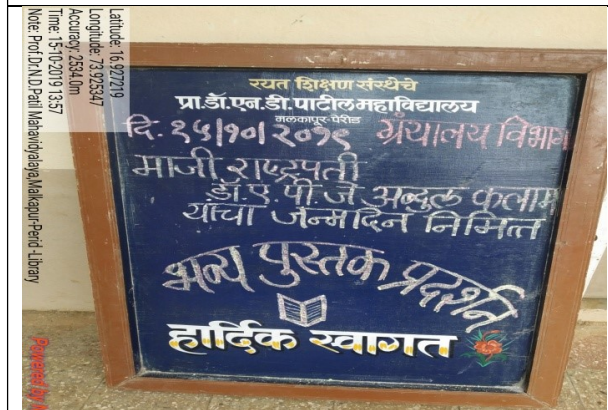 Latitude: 16.927219
Longitude: 73.925347
Accuracy: 2534.0m
Time: 15-10-2019 13:57
Note: Prof.Dr.N.D.Patil Mahavidyalaya,Malkapur-Perid -Library
Powered by
रयत शिक्षण संस्थेचे
प्रा.डॉ.एन.डी.पाटील महाविद्यालय
मलकापूर-पेरीड
दि. १५/१०/२०१९ ग्रंथालय विभाग
माजी राष्ट्रपती
डॉ.ए.पी.जे. अब्दुल कलाम
यांचा जन्मदिन निमित्त
भव्य पुस्तक प्रदर्शन
हार्दिक स्वागत